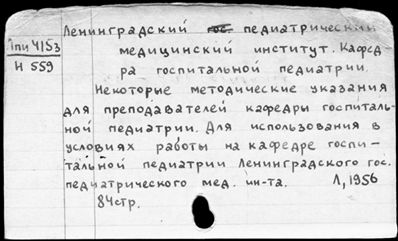 Ленинградский гос педиатрический
1пи415з
медицинский институт. Кафед
Н 559
ра госпитальной педиатрии.
Некоторые методические указания
для преподавателей кафедры госпиталь-
ной педиатрии. Для использования в
условиях работы на кафедре госпи-
тальной педиатрии Ленинградского гос.
педиатрического мед. ин-та. Л, 1956
84стр.